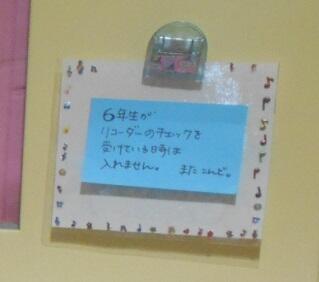 6年生が
リコーダーのチェックを
受けている時は
入れません。 またこんど。